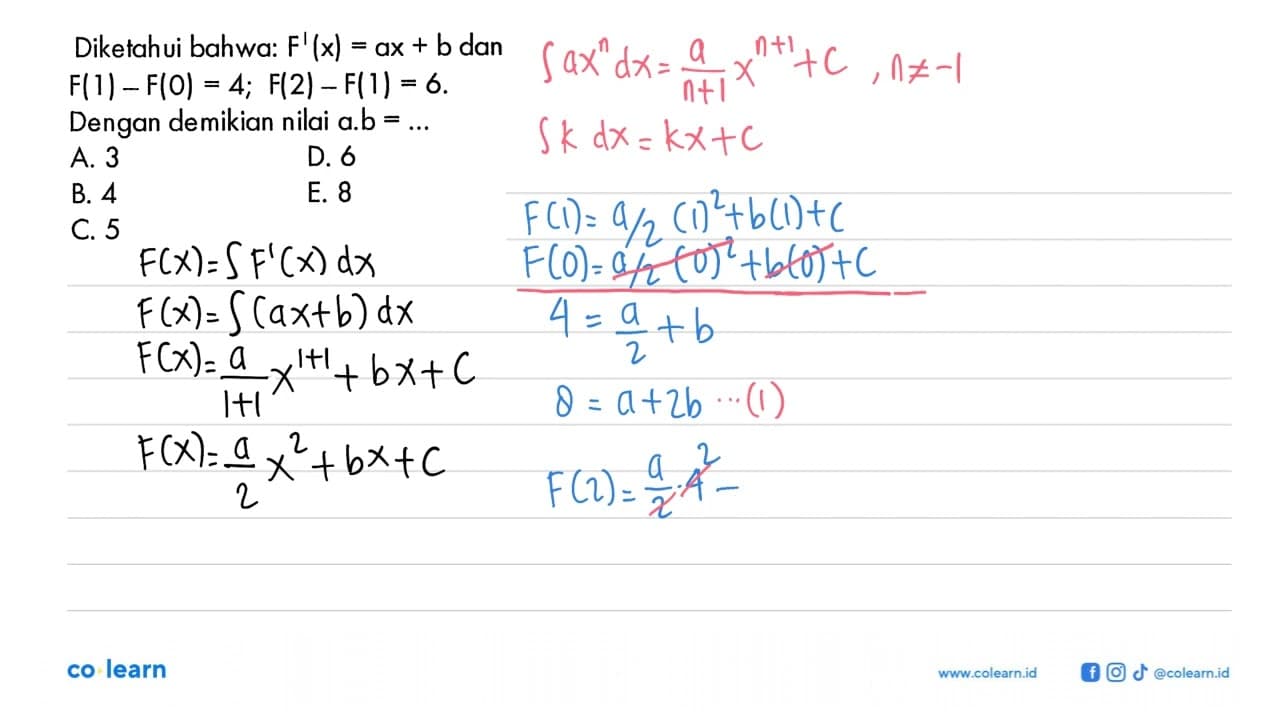 Diketahui bahwa: F'(x) = ax + b dan
F(1) – F(0) = 4; F(2) – F(1) = 6.
Dengan demikian nilai a.b = ...
A. 3 D. 6
B. 4 E. 8
C. 5
F(x) = ∫ F'(x) dx
F(x) = ∫ (ax+b) dx
F(x) = a/(1+1) x^(1+1) + bx + C
F(x) = a/2 x² + bx + C
∫ ax^n dx = a/(n+1) x^(n+1) + C , n ≠ -1
∫ k dx = kx + C
F(1) = a/2 (1)² + b(1) + C
F(0) = a/2 (0)² + b(0) + C
4 = a/2 + b
8 = a + 2b ... (1)
F(2) = a/2 · 4 2 –
co learn
www.colearn.id @colearn.id